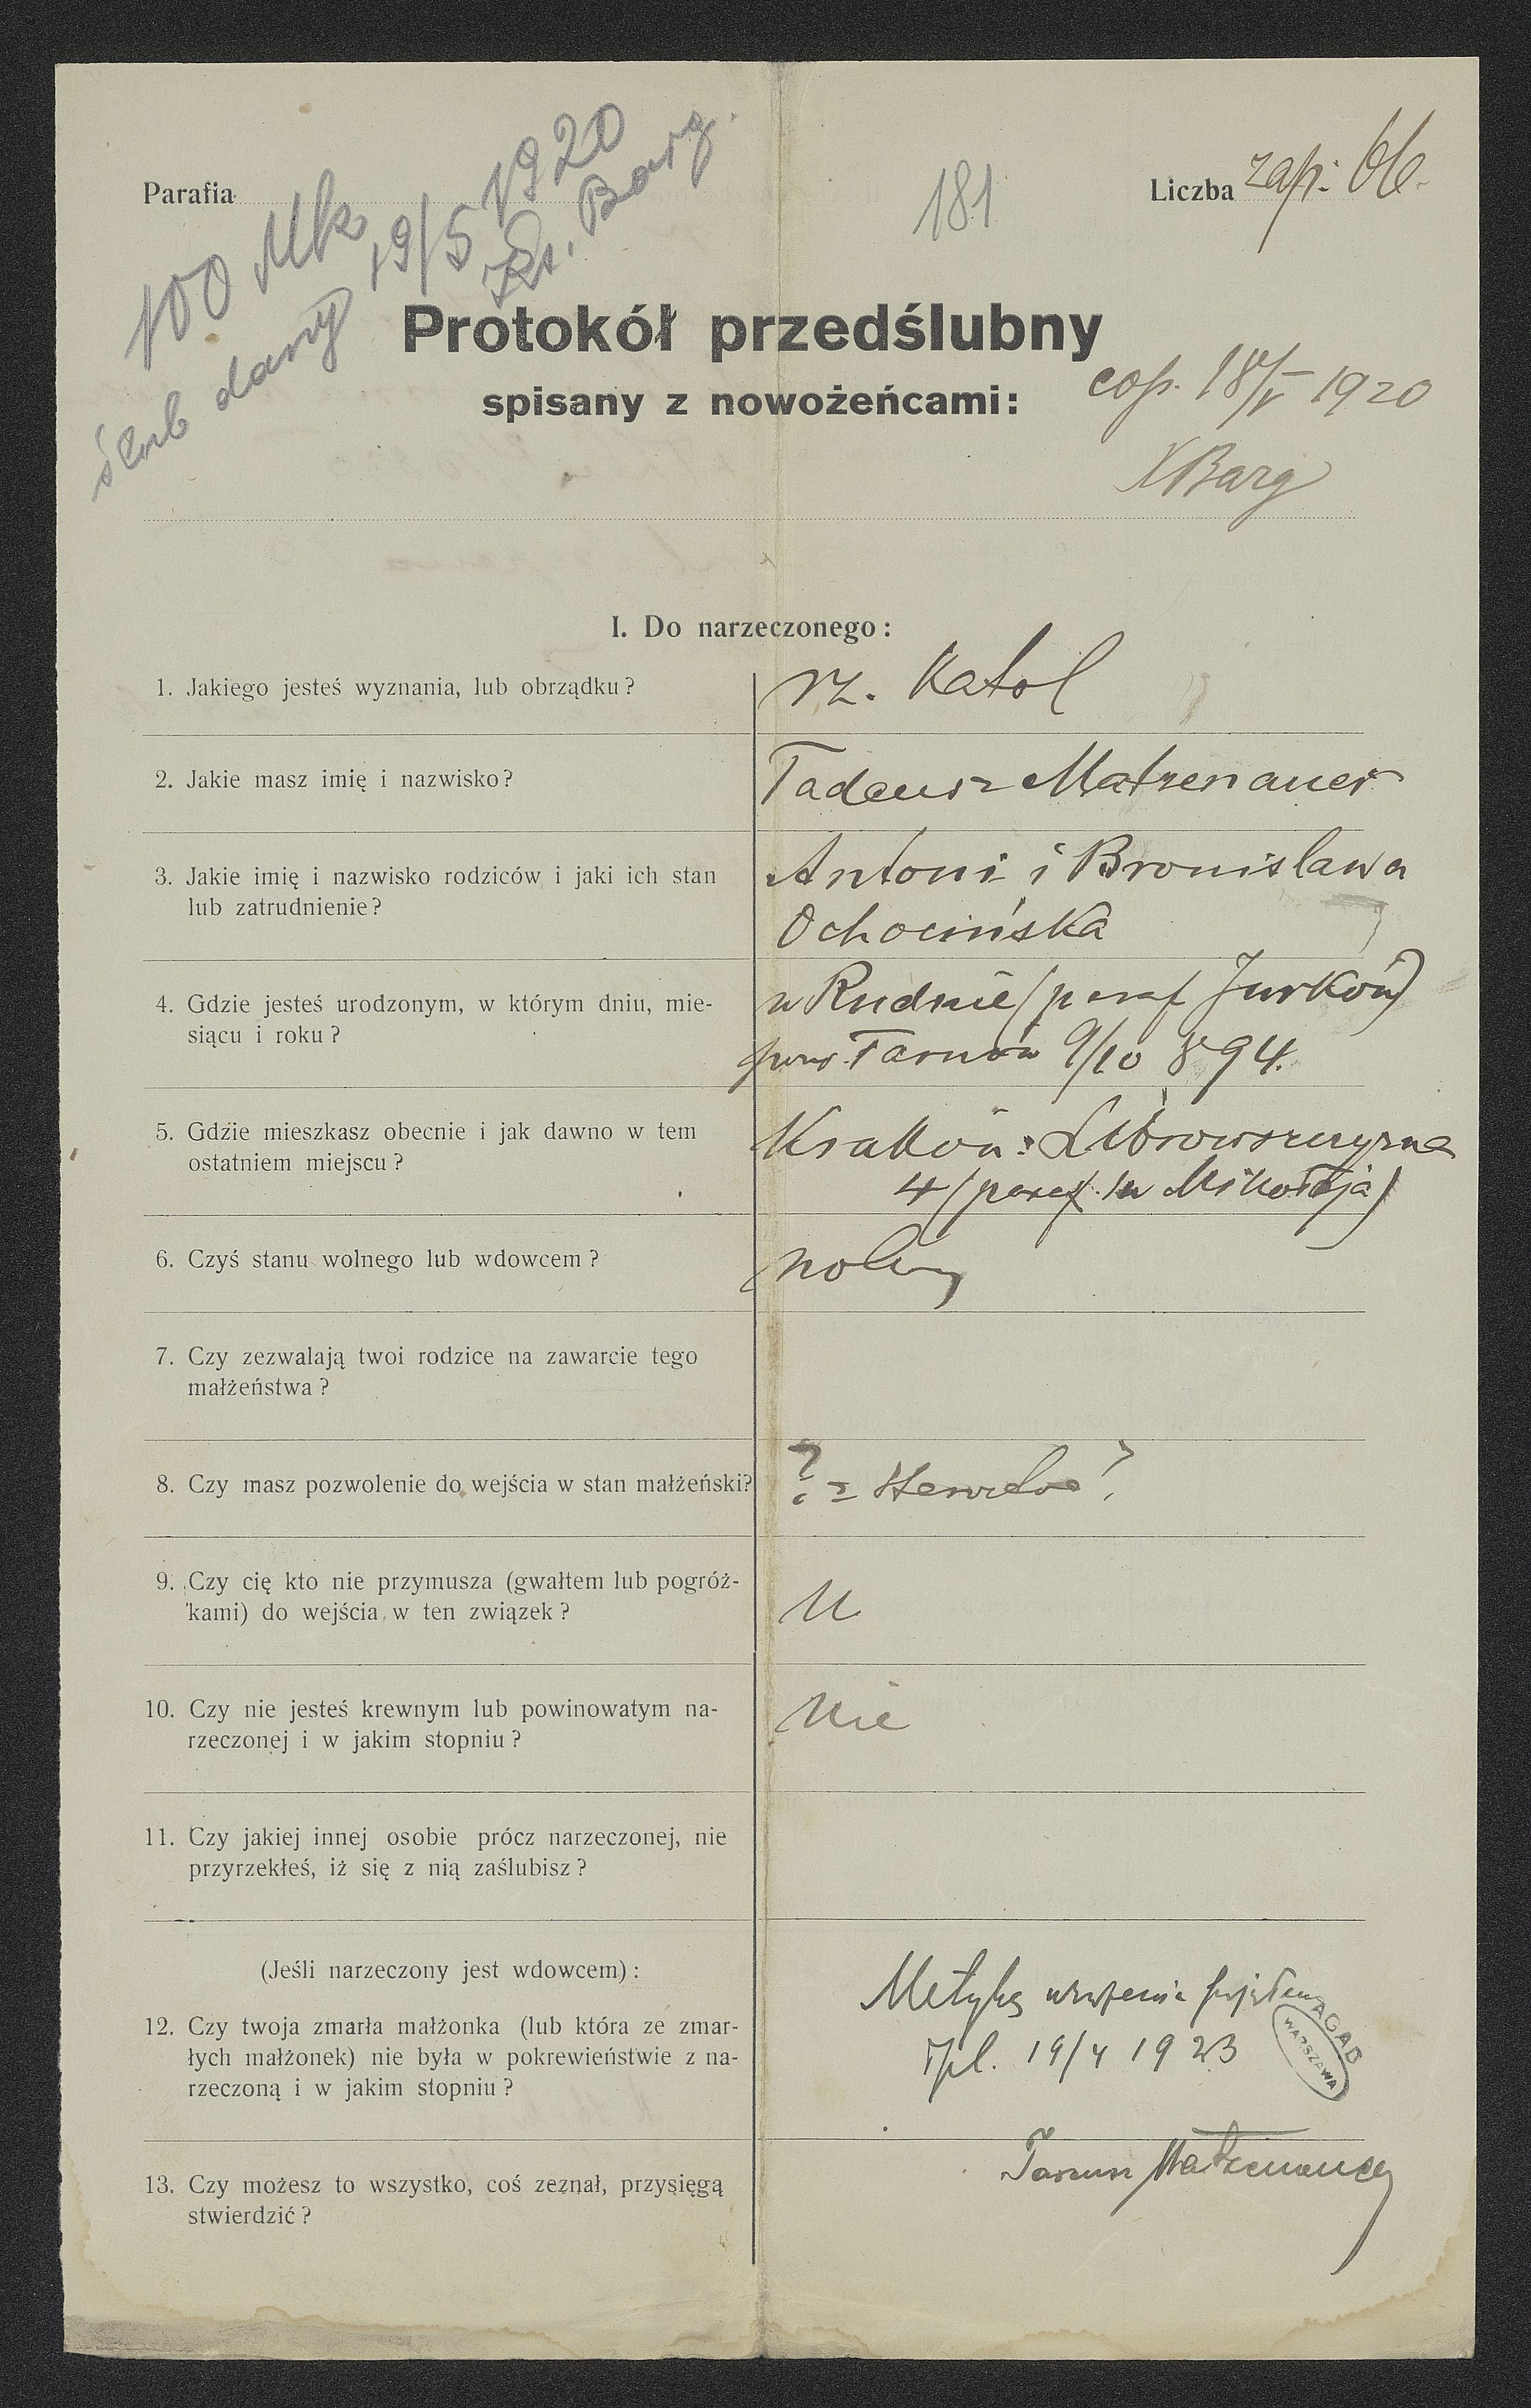 Parafia
100 Mk
ślub dany 19/5 1920
X. Barg.
181
Liczba zap: 66.
Protokół przedślubny
spisany z nowożeńcami:
cop. 18/V 1920
XBarg
I. Do narzeczonego:
1. Jakiego jesteś wyznania, lub obrządku?
rz. Katol
2. Jakie masz imię i nazwisko?
Tadeusz Matzenauer
3. Jakie imię i nazwisko rodziców i jaki ich stan
lub zatrudnienie?
Antoni i Bronisława
Ochocińska
4. Gdzie jesteś urodzonym, w którym dniu, mie-
siącu i roku?
w Rudnie (paraf Jurków)
pow. Tarnów 9/10 894.
5. Gdzie mieszkasz obecnie i jak dawno w tem
ostatniem miejscu?
Kraków: Librowszczyzna
4 (paraf. św Mikołaja)
6. Czyś stanu wolnego lub wdowcem?
wolny
7. Czy zezwalają twoi rodzice na zawarcie tego
małżeństwa?
8. Czy masz pozwolenie do wejścia w stan małżeński?
? =
9. Czy cię kto nie przymusza (gwałtem lub pogróż-
kami) do wejścia w ten związek?
10. Czy nie jesteś krewnym lub powinowatym na-
rzeczonej i w jakim stopniu?
nie
11. Czy jakiej innej osobie prócz narzeczonej, nie
przyrzekłeś, iż się z nią zaślubisz?
(Jeśli narzeczony jest wdowcem):
12. Czy twoja zmarła małżonka (lub która ze zmar-
łych małżonek) nie była w pokrewieństwie z na-
rzeczoną i w jakim stopniu?
Metykę urodzenia
19/4 1923
AGAD
WARSZAWA
13. Czy możesz to wszystko, coś zeznał, przysięgą
stwierdzić?
Matzenauer